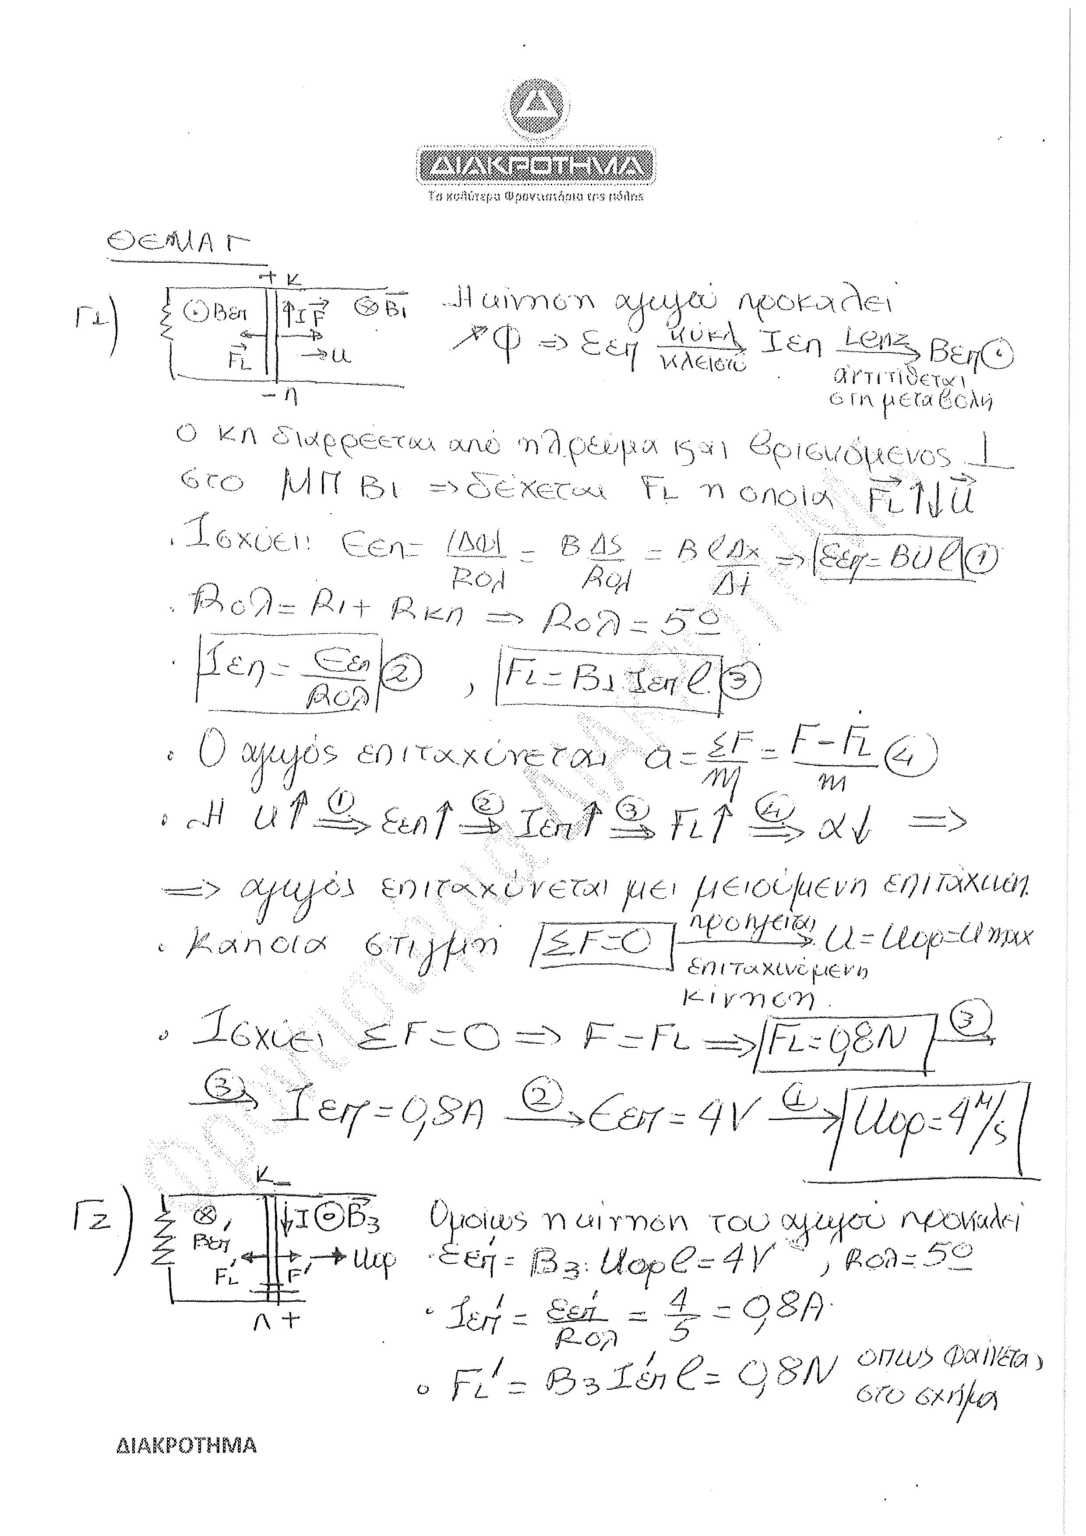 ΔΙΑΚΡΟΤΗΜΑ
Τα καλύτερα Φροντιστήρια της πόλης
ΘΕΜΑ Γ
Γ1)
+ K
⊙Bεπ
↑I F
⊗B1
FL
→u
- Λ
Η κίνηση αγωγού προκαλεί
↗Φ ⇒ Εεπ κύκλ κλειστό → Ιεπ Lenz → Βεπ⊙
αντιτίθεται
στη μεταβολή
Ο ΚΛ διαρρέεται από ηλ ρεύμα και βρισκόμενος ⊥
στο ΜΠ Β1 ⇒ δέχεται FL η οποία FL↑↓u
. Ισχύει: Εεπ = |ΔΦ|/Rολ = B ΔS/Rολ = B lΔx/Δt ⇒ Εεπ = BUl ①
. Rολ = R1 + Rκλ ⇒ Rολ = 5Ω
. Ιεπ = Εεπ/Rολ ② , FL = B1 Ιεπ l ③
• Ο αγωγός επιταχύνεται a = ΣF/m = F - FL/m ④
• Η u↑ ①⇒ Εεπ↑ ②⇒ Ιεπ↑ ③⇒ FL↑ ④⇒ α↓ ⇒
⇒ αγωγός επιταχύνεται μει μειούμενη επιτάχυνση.
• Κάποια στιγμή ΣF=0 προηγείται → u = uορ = umax
επιταχυνόμενη
κίνηση.
• Ισχύει ΣF=0 ⇒ F = FL ⇒ FL = 0,8N ③→
③→ Ιεπ = 0,8A ②→ Εεπ = 4V ①→ uορ = 4 m/s
Γ2)
K -
⊗ Bεπ'
↓I ⊙B3
FL' F' → uορ
Λ +
Ομοίως η κίνηση του αγωγού προκαλεί
• Εεπ' = B3 · uορ l = 4V , Rολ = 5Ω
• Ιεπ' = Εεπ'/Rολ = 4/5 = 0,8A
• FL' = B3 Ιεπ' l = 0,8N όπως φαίνεται
στο σχήμα
ΔΙΑΚΡΟΤΗΜΑ
Φροντιστήρια ΔΙΑΚΡΟΤΗΜΑ